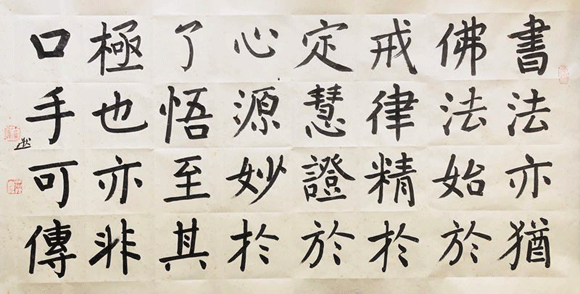 書法亦猶
佛法始於
戒律精於
定慧證於
心源妙於
了悟至其
極也亦非
口手可傳